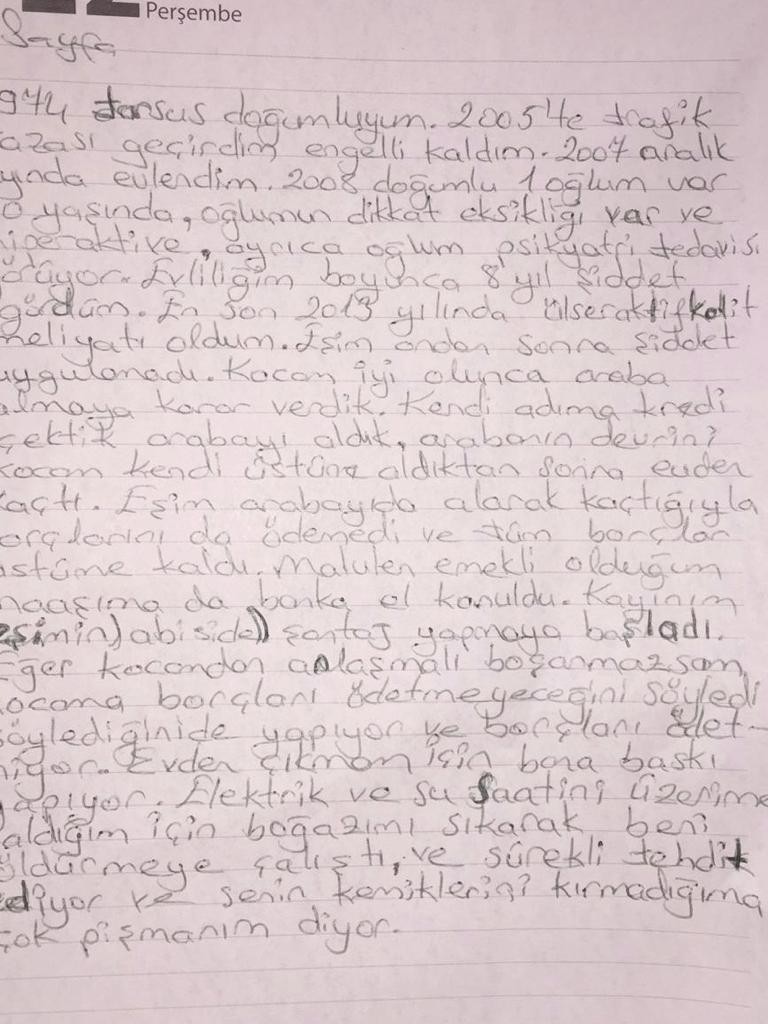 Perşembe
Sayfa
974 tarsus doğumluyum. 2005'te trafik
azası geçirdim engelli kaldım. 2007 aralık
yında evlendim. 2008 doğumlu 1 oğlum var
0 yaşında, oğlumun dikkat eksikliği var ve
iperaktive, ayrıca oğlum psikyatri tedavisi
örüyor. Evliliğim boyunca 8 yıl şiddet
gördüm. En son 2013 yılında ülseraktifkolit
meliyatı oldum. Eşim ondan sonra şiddet
uygulamadı. Kocam iyi olunca araba
almaya karar verdik. Kendi adıma kredi
çektik arabayı aldık, arabanın devrini
kocam kendi üstüne aldıktan sonra evden
kaçtı. Eşim arabayıda alarak kaçtığıyla
orçlarını da ödemedi ve tüm borçlar
üstüme kaldı. Malulen emekli olduğum
maaşıma da banka el konuldu. Kayınım
eşimin) abiside) şantaj yapmaya başladı.
Eğer kocamdan anlaşmalı boşanmazsam,
kocama borçları ödetmeyeceğini söyledi
söylediğinide yapıyor ve borçları ödet-
miyor. Evden çıkmam için bana baskı
yapıyor. Elektrik ve su saatini üzerime
aldığım için boğazımı sıkarak beni
öldürmeye çalıştı, ve sürekli tehdit
ediyor ve senin kemiklerini kırmadığıma
çok pişmanım diyor.